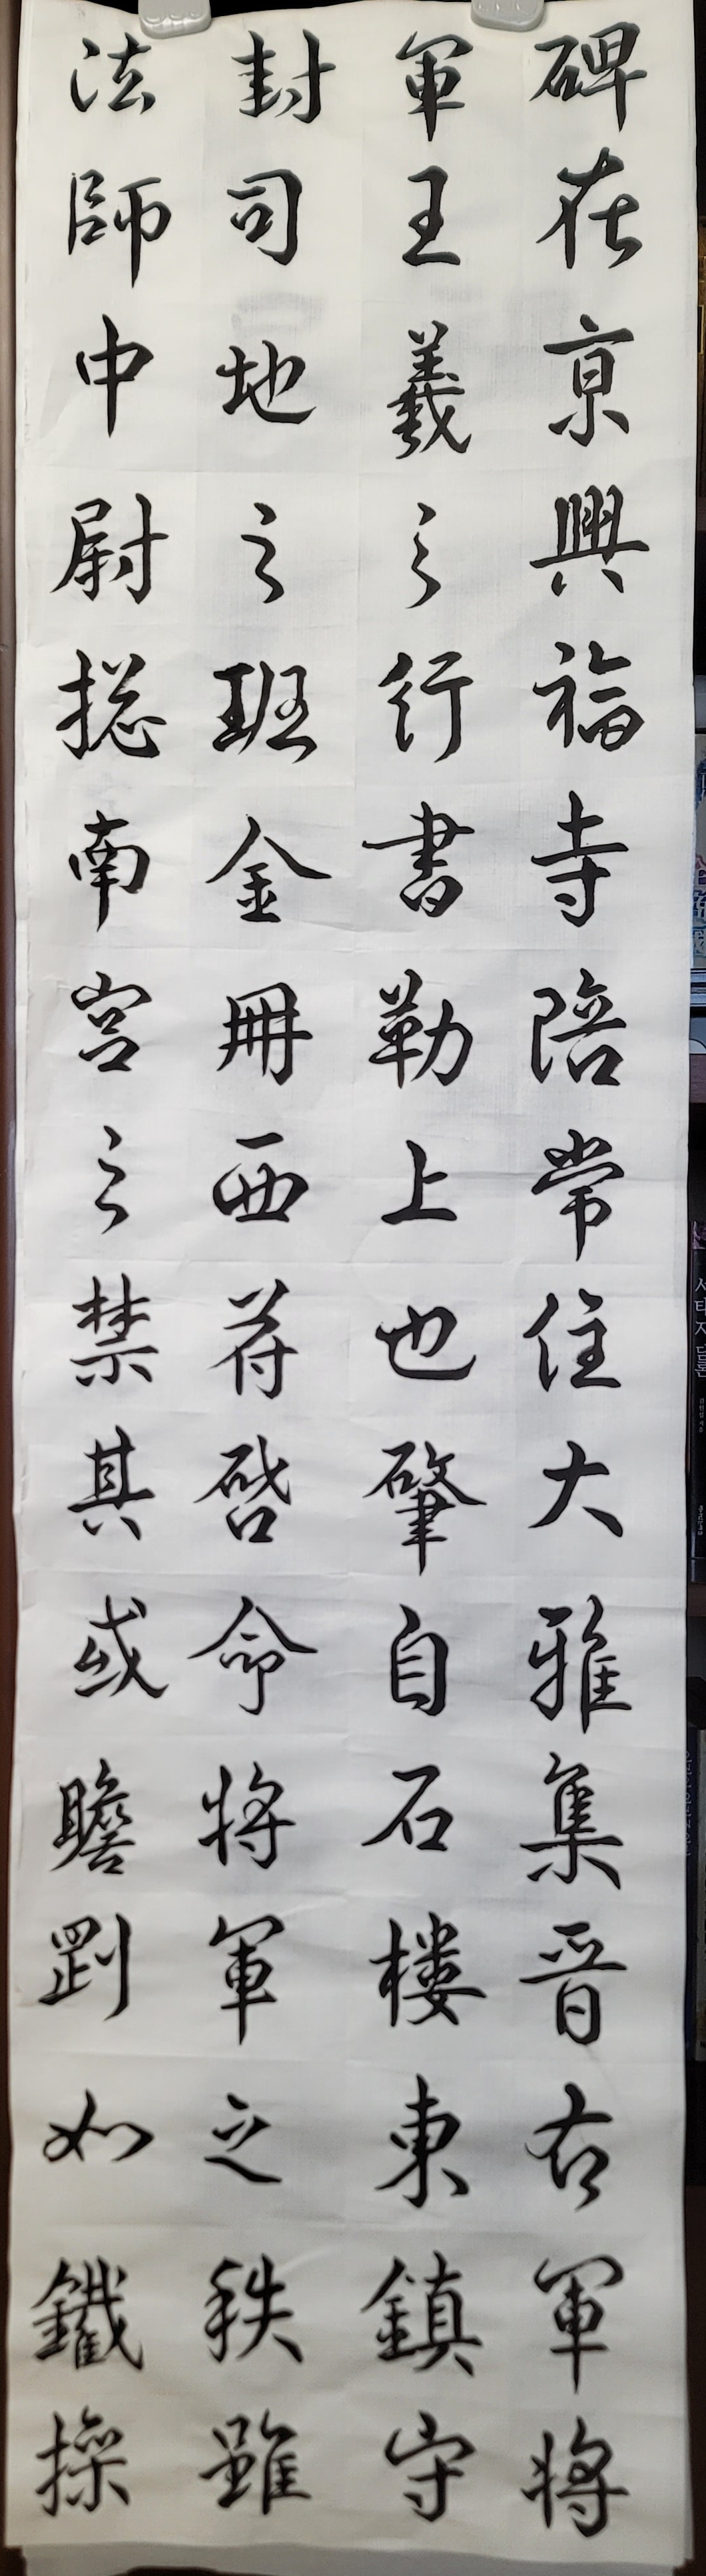 碑在京興福寺陪常住大雅集晋右軍將
軍王羲之行書勒上也肇自石樓東鎮守
封司地之班金冊西苻啓命將軍之秩雖
法師中尉揔南宮之禁其或瞻罰如鐵操